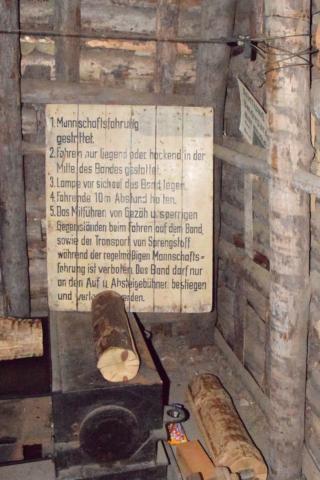 1. Mannschaftsfahrung
gestattet.
2. Fahren nur liegend oder hockend in der
Mitte des Bandes gestattet.
3. Lampe vor sich auf das Band legen.
4. Fahrende 10m Abstand halten.
5. Das Mitführen von Gezäh u. sperrigen
Gegenständen beim Fahren auf dem Band,
sowie der Transport von Sprengstoff
während der regelmäßigen Mannschafts-
fahrung ist verboten. Das Band darf nur
an den Auf u. Absteigebühnen bestiegen
und werden.